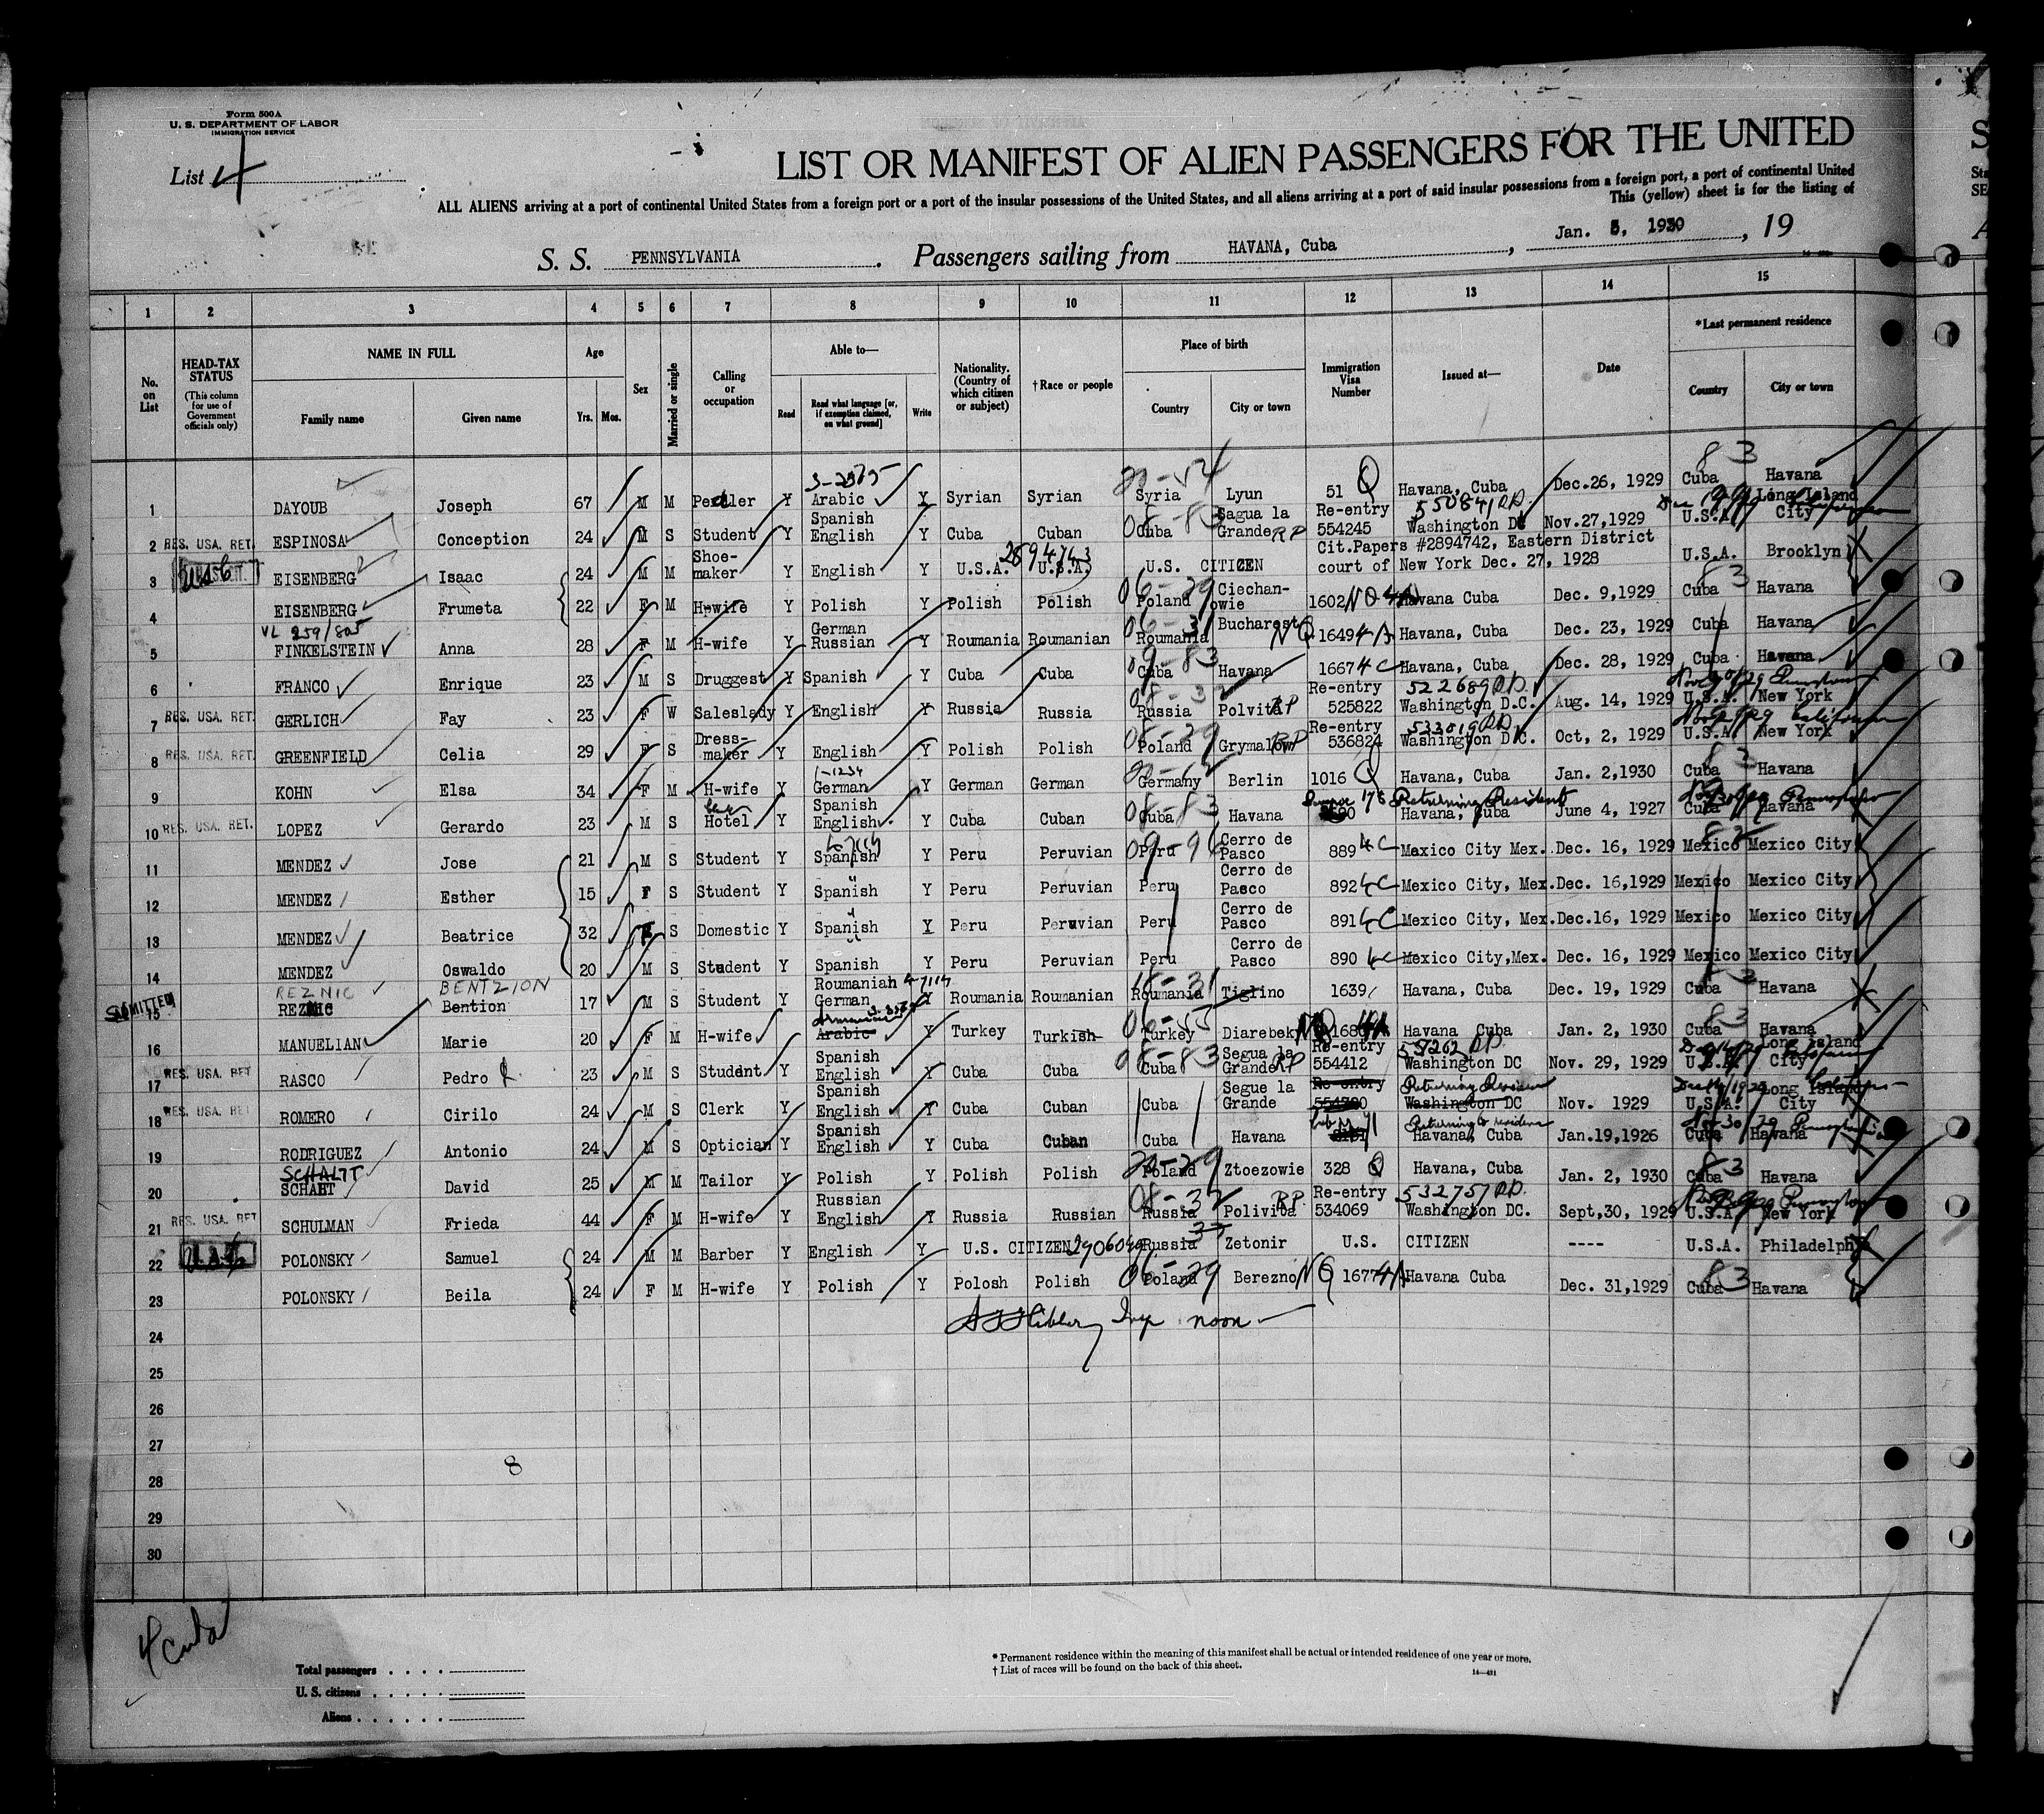 Form 500A
U. S. DEPARTMENT OF LABOR
IMMIGRATION SERVICE
List 4
LIST OR MANIFEST OF ALIEN PASSENGERS FOR THE UNITED
ALL ALIENS arriving at a port of continental United States from a foreign port or a port of the insular possessions of the United States, and all aliens arriving at a port of said insular possessions from a foreign port, a port of continental United
This (yellow) sheet is for the listing of
S. S. PENNSYLVANIA. Passengers sailing from HAVANA, Cuba, Jan. 5, 1930, 19
1 2 3 4 5 6 7 8 9 10 11 12 13 14 15
No. on List
HEAD-TAX STATUS (This column for use of Government officials only)
NAME IN FULL Family name Given name
Age Yrs. Mos.
Sex
Married or single
Calling or occupation
Able to— Read Read what language [or, if exemption claimed, on what ground] Write
Nationality. (Country of which citizen or subject)
† Race or people
Place of birth Country City or town
Immigration Visa Number
Issued at—
Date
*Last permanent residence Country City or town
1 DAYOUB Joseph 67 M M Pedler Y Arabic Y Syrian Syrian Syria Lyun 51 Q Havana, Cuba Dec.26, 1929 Cuba Havana
2 RES. USA. RET. ESPINOSA Conception 24 M S Student Y Spanish English Y Cuba Cuban Cuba Sagua la Grande RP Re-entry 554245 550841 RP. Washington DC Nov.27,1929 U.S.A. Long Island City
3 EISENBERG Isaac 24 M M Shoe-maker Y English Y U.S.A. U.S.A. U.S. CITIZEN Cit.Papers #2894742, Eastern District court of New York Dec. 27, 1928 U.S.A. Brooklyn
4 EISENBERG Frumeta 22 F M H-wife Y Polish Y Polish Polish Poland Ciechan-owie 1602 Havana Cuba Dec. 9,1929 Cuba Havana
5 VL 259/805 FINKELSTEIN Anna 28 F M H-wife Y German Russian Y Roumania Roumanian Roumania Bucharest NQ 1649 4A Havana, Cuba Dec. 23, 1929 Cuba Havana
6 FRANCO Enrique 23 M S Druggest Y Spanish Y Cuba Cuba Cuba Havana 1667 4C Havana, Cuba Dec. 28, 1929 Cuba Havana
7 RES. USA. RET. GERLICH Fay 23 F W Saleslady Y English Y Russia Russia Russia Polvita RP Re-entry 525822 522689 RP. Washington D.C. Aug. 14, 1929 U.S.A. New York
8 RES. USA. RET. GREENFIELD Celia 29 F S Dress-maker Y English Y Polish Polish Poland Grymalow RP Re-entry 536824 533019 RP. Washington D.C. Oct, 2, 1929 U.S.A. New York
9 KOHN Elsa 34 F M H-wife Y German Y German German Germany Berlin 1016 Q Havana, Cuba Jan. 2,1930 Cuba Havana
10 RES. USA. RET. LOPEZ Gerardo 23 M S Hotel Y Spanish English Y Cuba Cuban Cuba Havana Returning Resident Havana, Cuba June 4, 1927 Cuba Havana
11 MENDEZ Jose 21 M S Student Y Spanish Y Peru Peruvian Peru Cerro de Pasco 889 4C Mexico City Mex. Dec. 16, 1929 Mexico Mexico City
12 MENDEZ Esther 15 F S Student Y Spanish Y Peru Peruvian Peru Cerro de Pasco 892 4C Mexico City, Mex. Dec. 16,1929 Mexico Mexico City
13 MENDEZ Beatrice 32 F S Domestic Y Spanish Y Peru Peruvian Peru Cerro de Pasco 891 4C Mexico City, Mex. Dec.16, 1929 Mexico Mexico City
14 MENDEZ Oswaldo 20 M S Student Y Spanish Y Peru Peruvian Peru Cerro de Pasco 890 4C Mexico City,Mex. Dec. 16, 1929 Mexico Mexico City
REZNIC BENTZION
ADMITTED 15 REZNIC Bention 17 M S Student Y Roumanian German Y Roumania Roumanian Roumania Tiglino 1639 Havana, Cuba Dec. 19, 1929 Cuba Havana
16 MANUELIAN Marie 20 F M H-wife Armenian Arabic Y Turkey Turkish Turkey Diarebek Havana Cuba Jan. 2, 1930 Cuba Havana
17 RES. USA. RET RASCO Pedro 23 M S Student Y Spanish English Y Cuba Cuba Cuba Segua la Grande RP Re-entry 554412 Washington DC Nov. 29, 1929 U.S.A. Long Island City
18 RES. USA. RET ROMERO Cirilo 24 M S Clerk Y Spanish English Y Cuba Cuban Cuba Segue la Grande Re-entry Returning Resident Washington DC Nov. 1929 U.S.A. Long Island City
19 RODRIGUEZ Antonio 24 M S Optician Y Spanish English Y Cuba Cuban Cuba Havana Havana, Cuba Jan.19,1926 Cuba Havana
20 SCHALIT David 25 M M Tailor Y Polish Y Polish Polish Poland Ztoezowie 328 Q Havana, Cuba Jan. 2, 1930 Cuba Havana
21 RES. USA. RET SCHULMAN Frieda 44 F M H-wife Y Russian English Y Russia Russian Russia Polivita RP. Re-entry 534069 532757 RP. Washington DC. Sept,30, 1929 U.S.A. New York
22 POLONSKY Samuel 24 M M Barber Y English Y U.S. CITIZEN Russia Zetonir U.S. CITIZEN ---- U.S.A. Philadelph
23 POLONSKY Beila 24 F M H-wife Y Polish Y Polosh Polish Poland Berezno NQ 1677 4A Havana Cuba Dec. 31,1929 Cuba Havana
24
25
26
27
28
29
30
8
4 Cuba
Total passengers
U. S. citizens
Aliens
* Permanent residence within the meaning of this manifest shall be actual or intended residence of one year or more.
† List of races will be found on the back of this sheet.
14—431